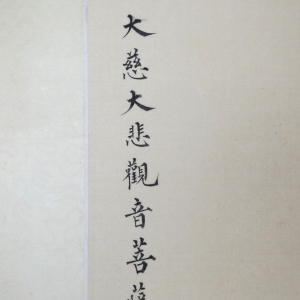 大慈大悲觀音菩